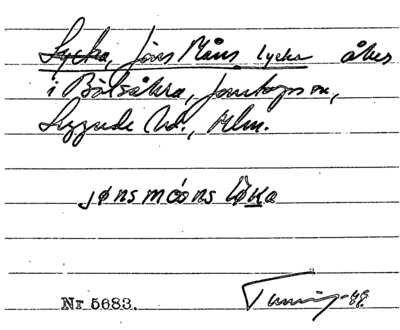 Lycka, Jöns Måns lycka åker
i Bälsåkra, Jonstorps sn,
Luggude hd, Mlm.
jøns móons løka
Nr 5683.